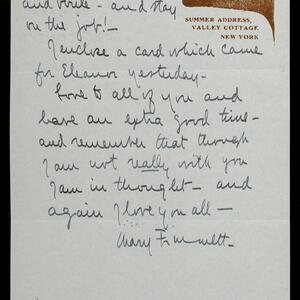 and smile - and stay
on the job! -
SUMMER ADDRESS,
VALLEY COTTAGE
NEW YORK
I enclose a card which came
for Eleanor yesterday -
Love to all of you and
have an extra good time -
and remember that through
I am not really with you
I am in thought - and
again I love you all -
Mary Emmett -